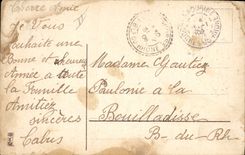 Je Vous
souhaite une
Bonne et heureuse
Année à toute
La Famille
Amitiés
sincères
Cabus
Madame Gautiez
Paulonie à La
Bouilladisse
B-du-Rh